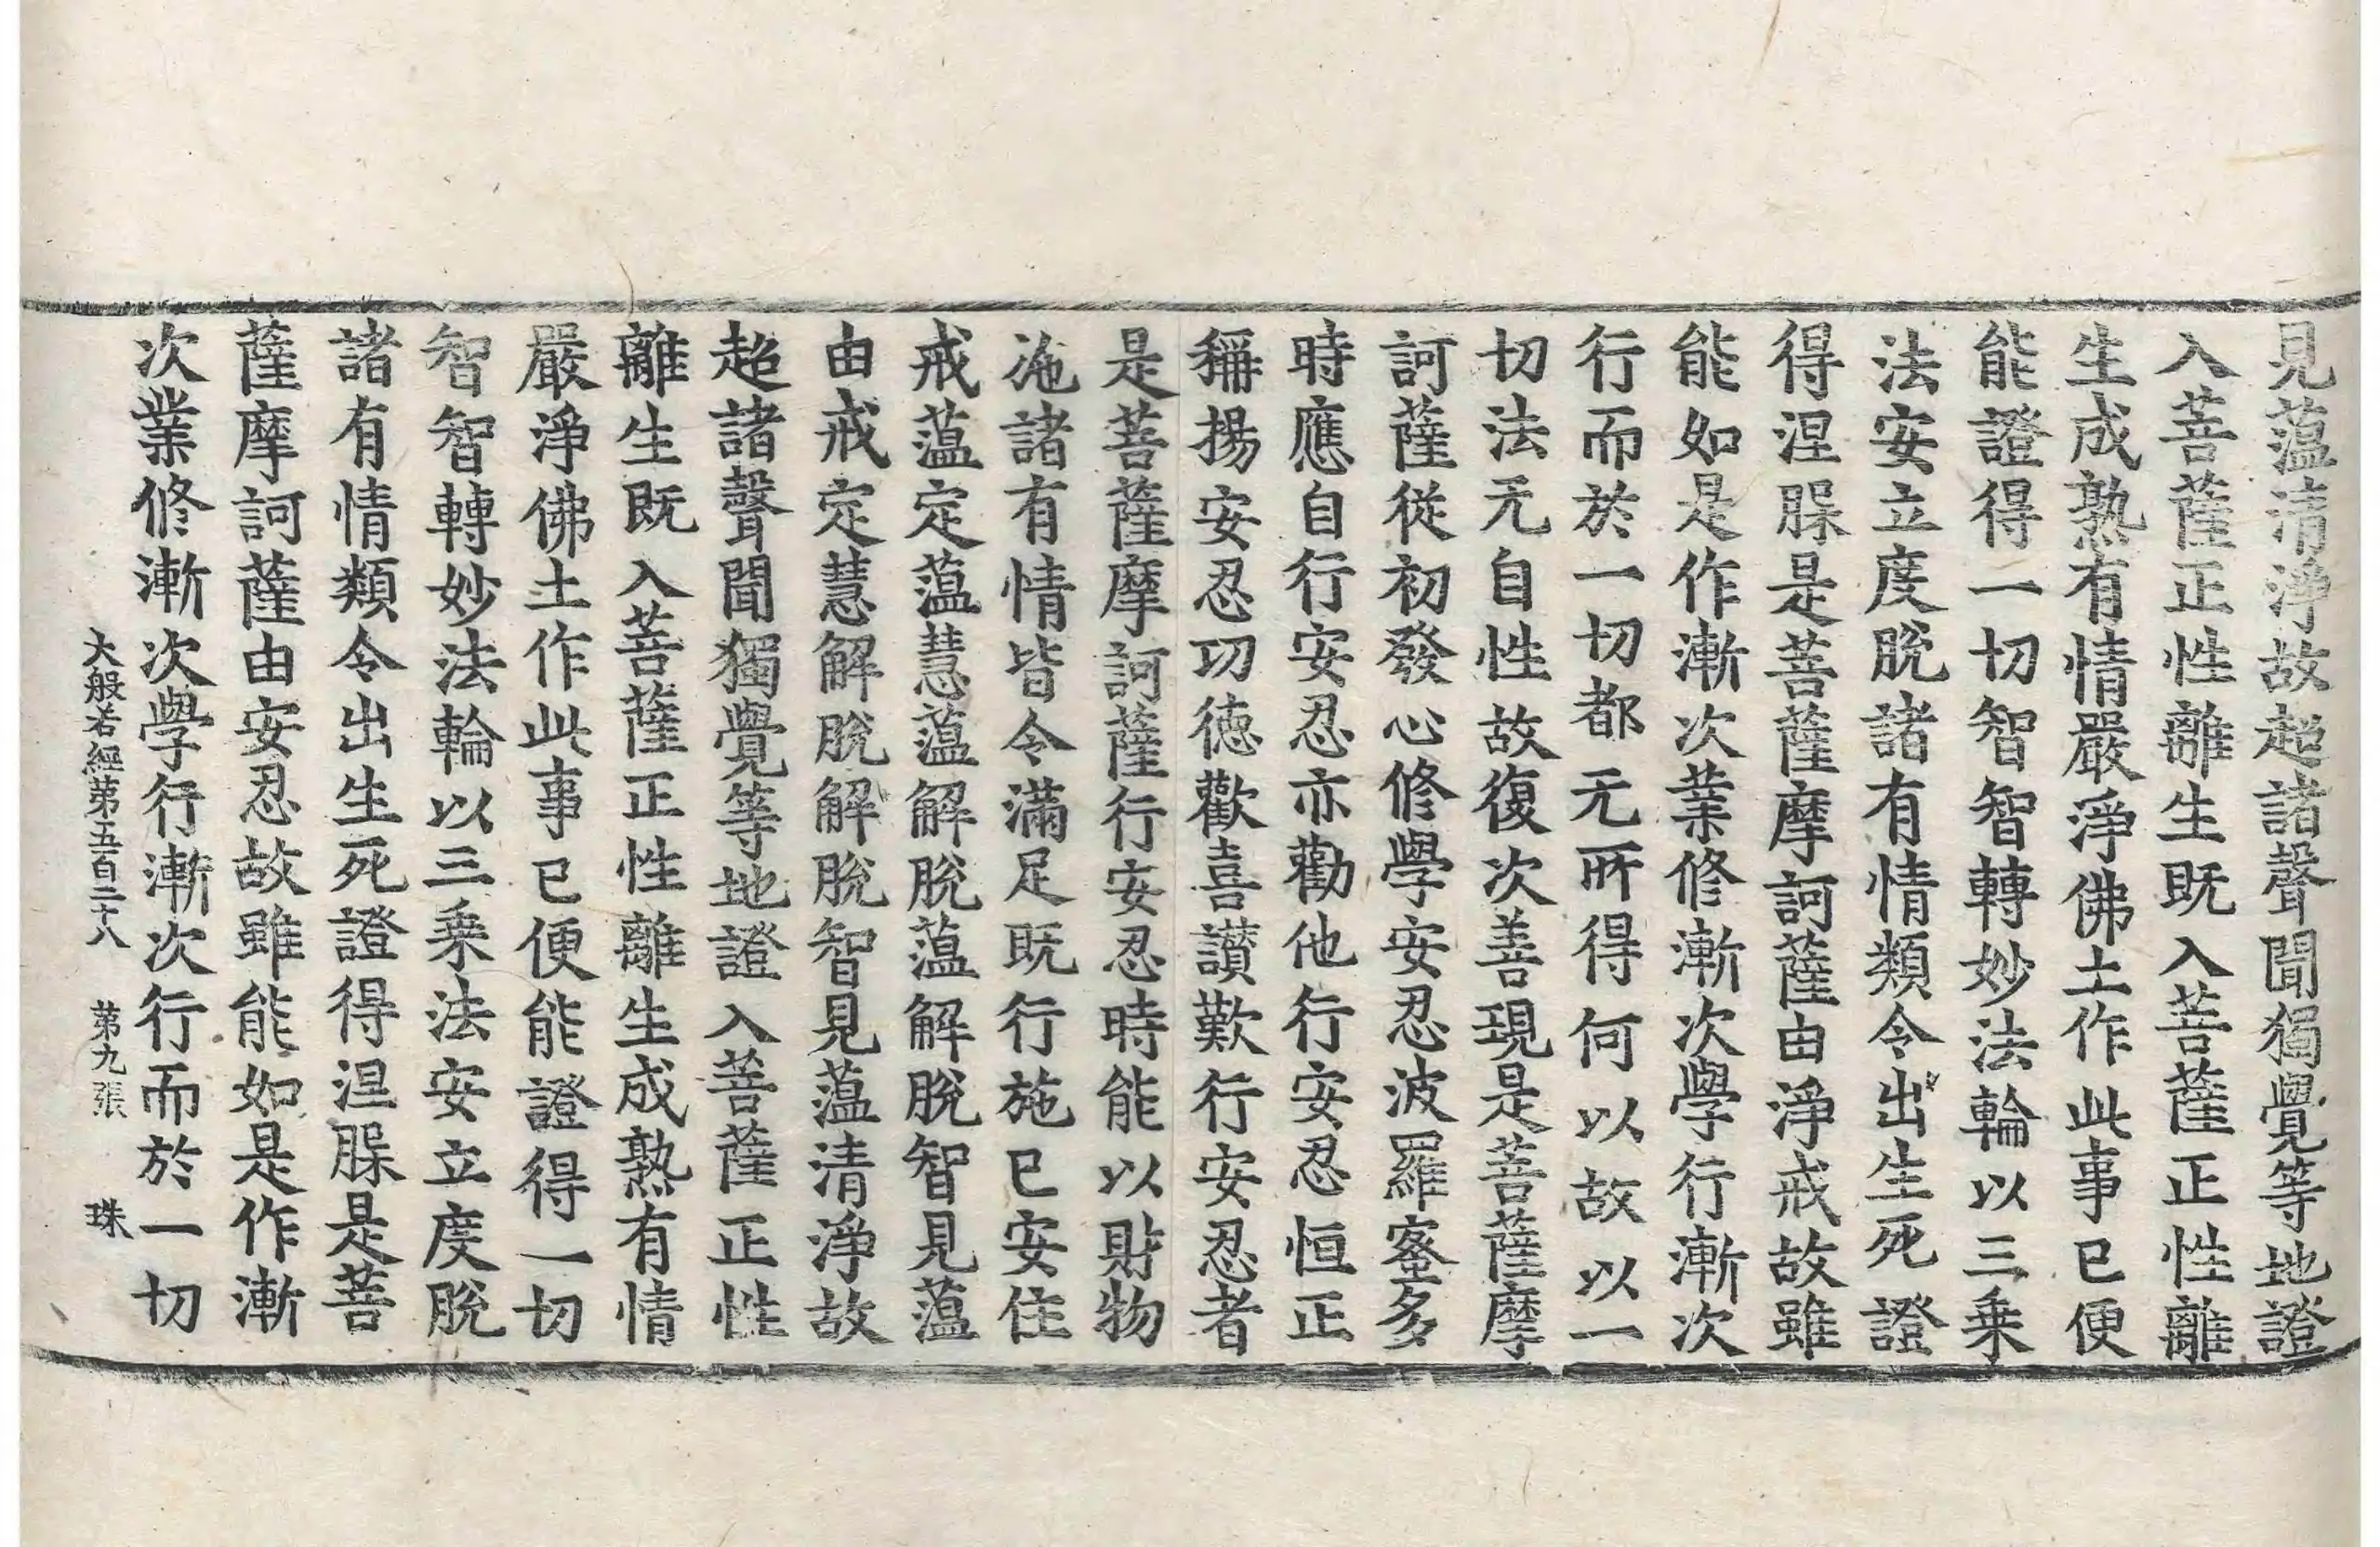 見蘊清淨故超諸聲聞獨覺等地證
入菩薩正性離生既入菩薩正性離
生成熟有情嚴淨佛土作此事已便
能證得一切智智轉妙法輪以三乗
法安立度脫諸有情類令出生死證
得涅槃是菩薩摩訶薩由淨戒故雖
能如是作漸次業修漸次學行漸次
行而於一切都无所得何以故以一
切法无自性故復次善現是菩薩摩
訶薩從初發心修學安忍波羅蜜多
時應自行安忍亦勸他行安忍恒正
稱揚安忍功德歡喜讃歎行安忍者
是菩薩摩訶薩行安忍時能以財物
施諸有情皆令滿足既行施已安住
戒蘊定蘊慧蘊解脫蘊解脫智見蘊
由戒定慧解脫解脫智見蘊清淨故
超諸聲聞獨覺等地證入菩薩正性
離生既入菩薩正性離生成熟有情
嚴淨佛土作此事已便能證得一切
智智轉妙法輪以三乗法安立度脫
諸有情類令出生死證得涅槃是菩
薩摩訶薩由安忍故雖能如是作漸
次業修漸次學行漸次行而於一切
大般若經第五百二十八 第九張 珠